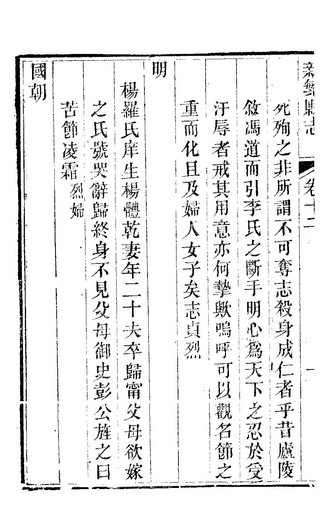 新繁縣志
卷十二
死殉之非所謂不可奪志殺身成仁者乎昔廬陵
敘馮道而引李氏之斷手明心爲天下之忍於受
汙辱者戒其用意亦何摯歟嗚呼可以觀名節之
重而化且及婦人女子矣志貞烈
明
楊羅氏庠生楊體乾妻年二十夫卒歸甯父母欲嫁
之氏號哭辭歸終身不見父母御史彭公旌之曰
苦節凌霜烈婦
國朝